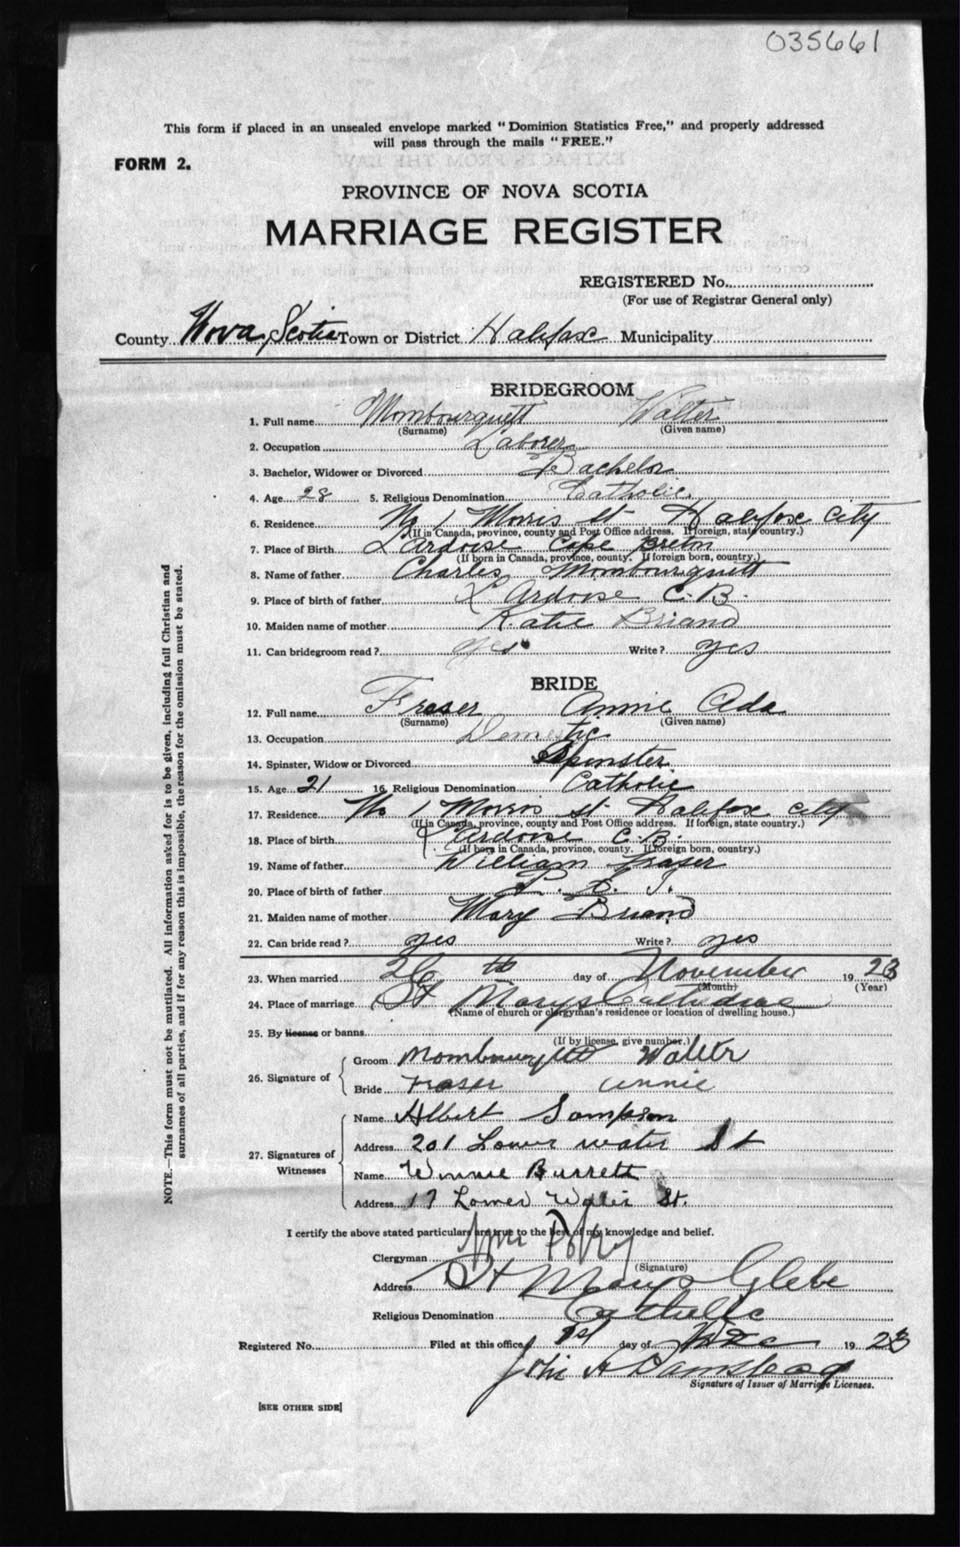 035661
This form if placed in an unsealed envelope marked "Dominion Statistics Free," and properly addressed
will pass through the mails "FREE."
FORM 2.
PROVINCE OF NOVA SCOTIA
MARRIAGE REGISTER
REGISTERED No.
(For use of Registrar General only)
County Nova Scotia Town or District Halifax Municipality
BRIDEGROOM
1. Full name Mombourquett Walter
(Surname) (Given name)
2. Occupation Laborer
3. Bachelor, Widower or Divorced Bachelor
4. Age 28 5. Religious Denomination Catholic
6. Residence No 1 Morris St Halifax City
(If in Canada, province, county and Post Office address. If foreign, state country.)
7. Place of Birth L Ardoise Cape Breton
(If born in Canada, province, county. If foreign born, country.)
8. Name of father Charles Mombourquett
9. Place of birth of father L Ardoise C. B.
10. Maiden name of mother Katie Briand
11. Can bridegroom read? yes Write? yes
BRIDE
12. Full name Fraser Annie Ada
(Surname) (Given name)
13. Occupation Domestic
14. Spinster, Widow or Divorced Spinster
15. Age 21 16. Religious Denomination Catholic
17. Residence No 1 Morris St Halifax City
(If in Canada, province, county and Post Office address. If foreign, state country.)
18. Place of birth L Ardoise C. B.
(If born in Canada, province, county. If foreign born, country.)
19. Name of father William Fraser
20. Place of birth of father P. E. I.
21. Maiden name of mother Mary Briand
22. Can bride read? yes Write? yes
23. When married 26th day of November 1923
(Month) (Year)
24. Place of marriage St Marys Cathedral
(Name of church or clergyman's residence or location of dwelling house.)
25. By license or banns
(If by license, give number.)
26. Signature of
Groom Mombourquett Walter
Bride Fraser Annie
27. Signatures of Witnesses
Name Albert Sampson
Address 201 Lower water St
Name Winnie Burrett
Address 17 Lower Water St.
I certify the above stated particulars are true to the best of my knowledge and belief.
Clergyman
(Signature)
Address St Marys Glebe
Religious Denomination Catholic
Registered No. Filed at this office 1st day of Dec 1923
John A
Signature of Issuer of Marriage Licenses.
[SEE OTHER SIDE]
NOTE.—This form must not be mutilated. All information asked for is to be given, including full Christian and
surnames of all parties, and if for any reason this is impossible, the reason for the omission must be stated.